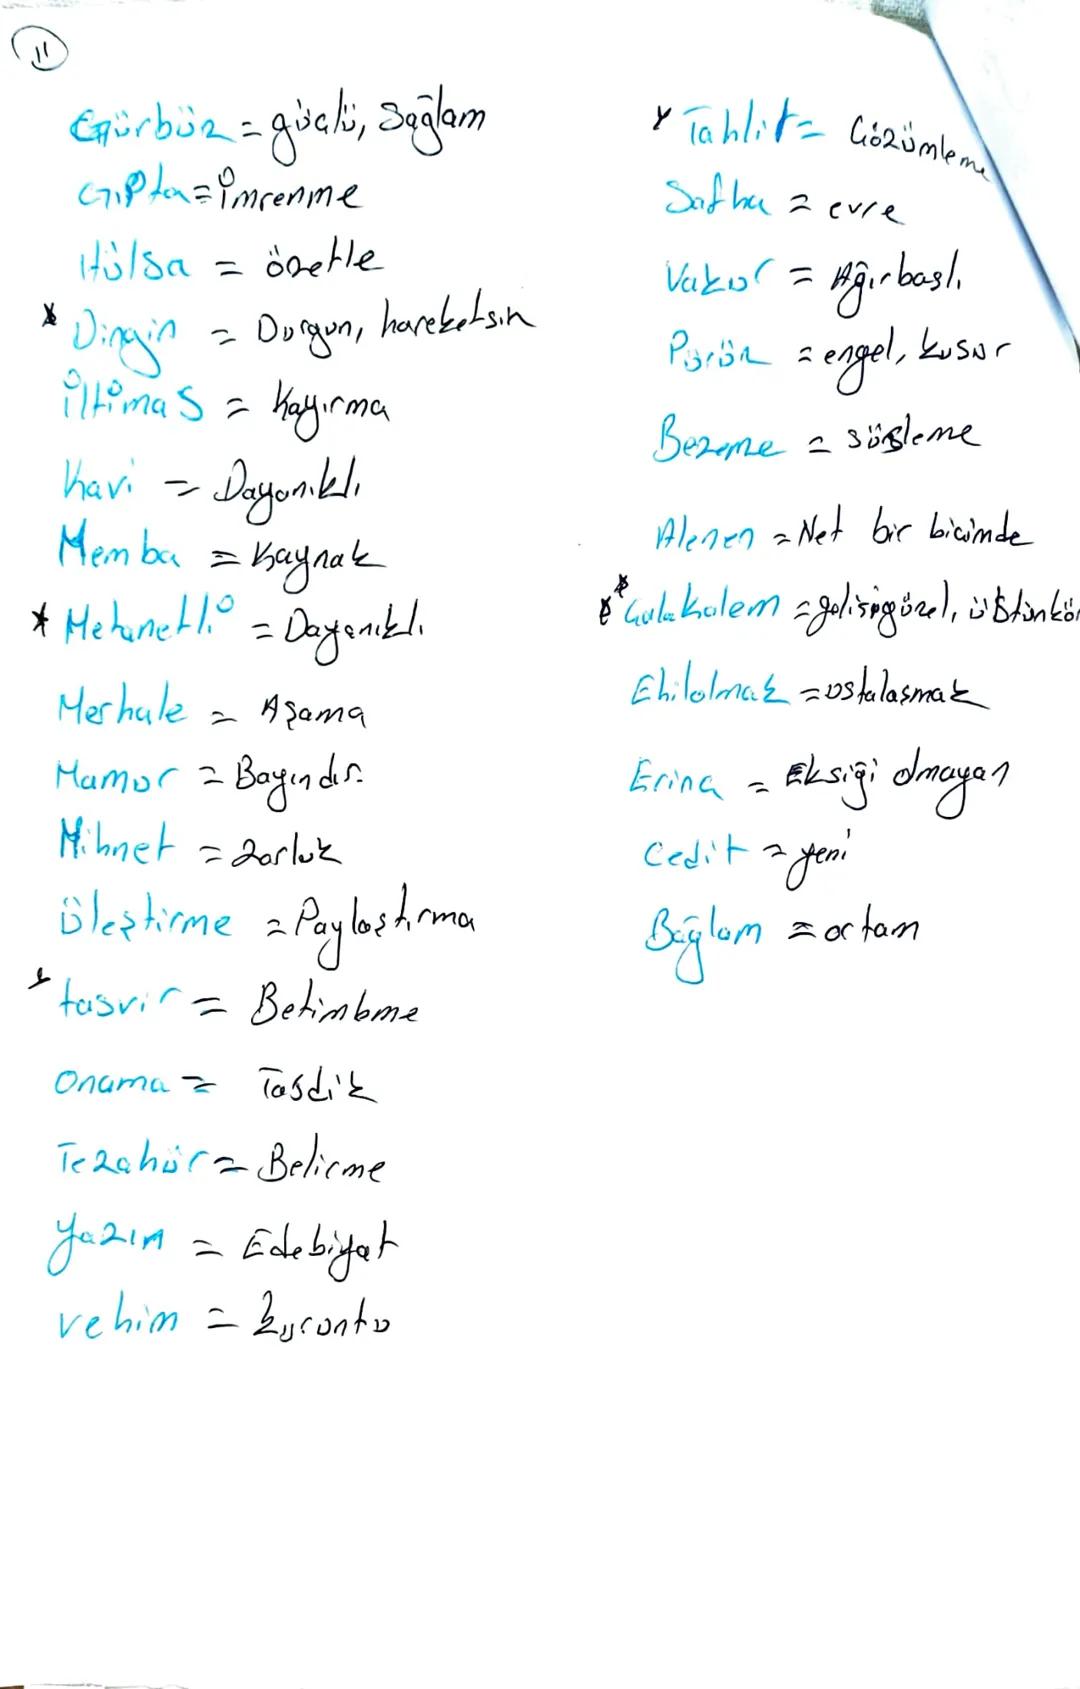 11
Gürbüz = güçlü, Sağlam
Gıpta = İmrenme
Hülsa = özetle
* Dingin = Durgun, hareketsin
İltimaS = Kayırma
Kavi = Dayanıklı
Memba = Kaynak
* Metanetli = Dayanıklı
Merhale = Aşama
Mamur = Bayındır
Mihnet = zorluk
Üleştirme = Paylaştırma
* tasvir = Betimleme
Onama = Tasdik
Tezahür = Belirme
Yazın = Edebiyat
vehim = kuruntu
* Tahlit = Çözümleme
Safha = evre
Vakur = Ağırbaşlı
Pürüz = engel, kusur
Bezeme = süsleme
Alenen = Net bir biçimde
** Çalakalem = gelişigüzel, üstünkör
Ehilolmak = ustalaşmak
Erinç = Eksiği olmayan
Cedit = yeni
Bağlam = ortam